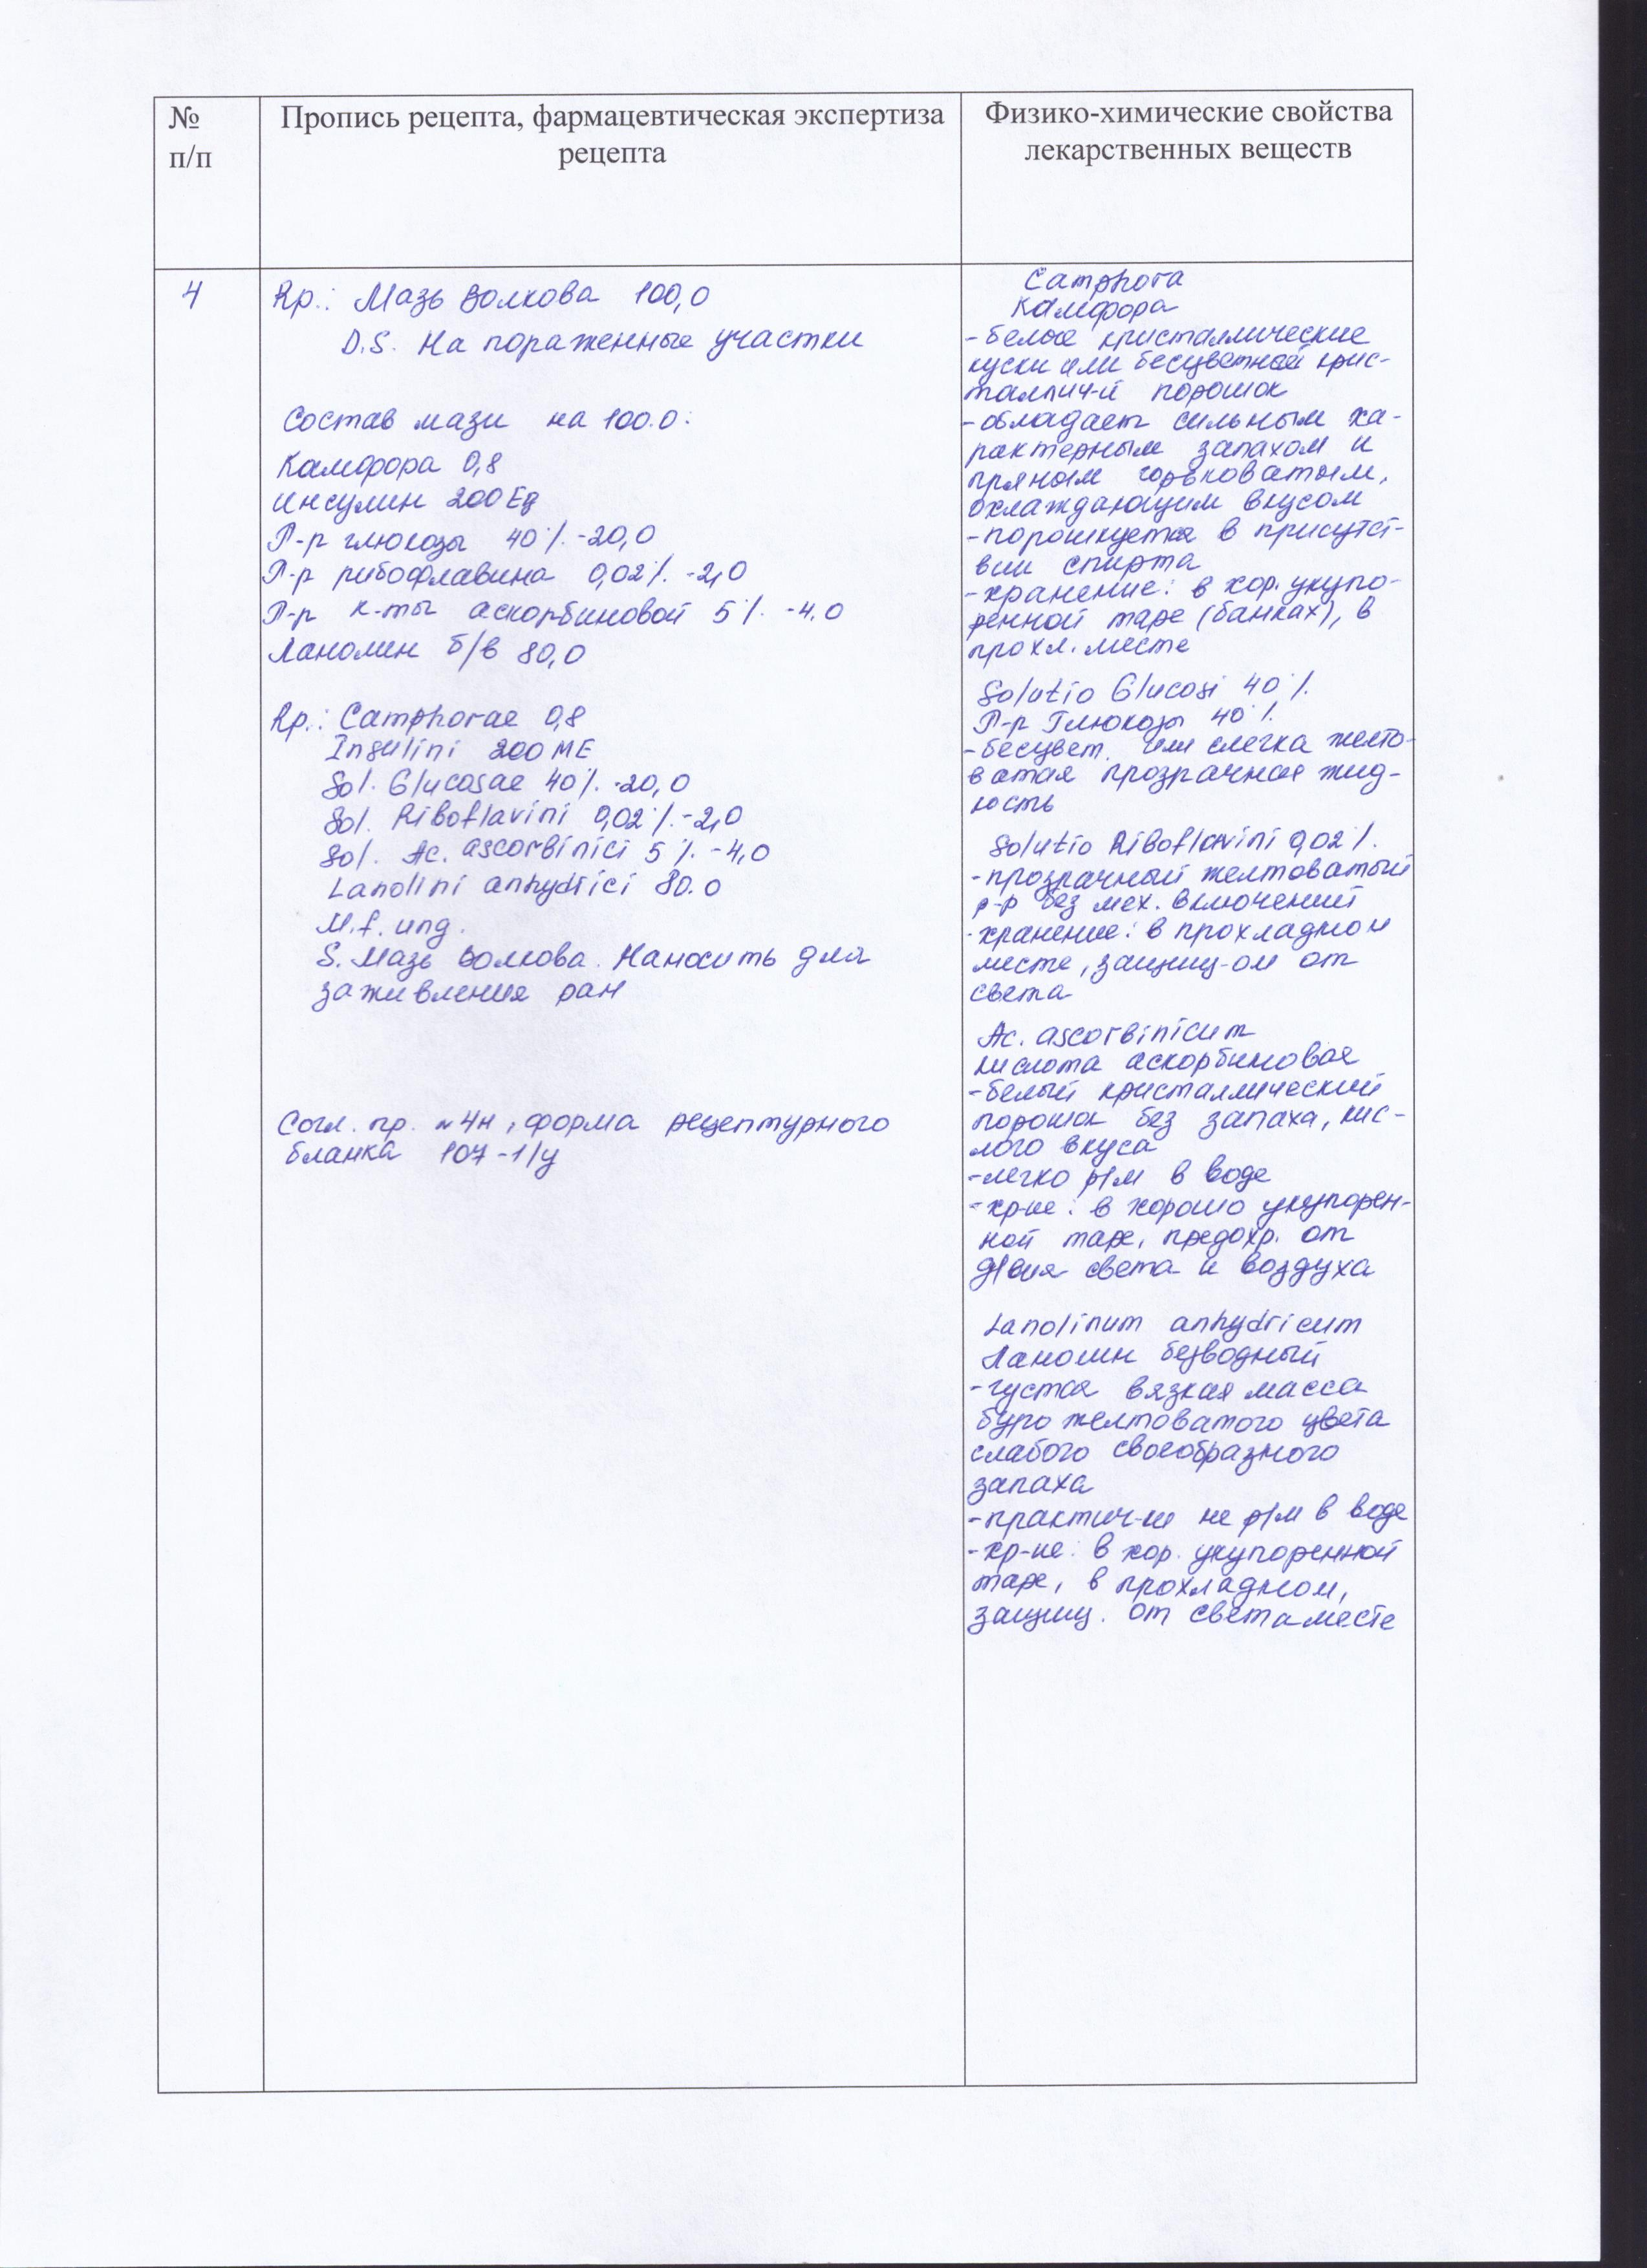 №
п/п
Пропись рецепта, фармацевтическая экспертиза
рецепта
Физико-химические свойства
лекарственных веществ
4
Rp.: Мазь Волкова 100,0
D.S. На пораженные участки
Состав мази на 100.0:
Камфора 0,8
Инсулин 200 Ед
Р-р глюкозы 40% -20,0
Р-р рибофлавина 0,02% -2,0
Р-р к-ты аскорбиновой 5% -4,0
Ланолин б/в 80,0
Rp.: Camphorae 0,8
Insulini 200 ME
Sol. Glucosae 40% -20,0
Sol. Riboflavini 0,02% -2,0
Sol. Ac. ascorbinici 5% -4,0
Lanolini anhydrici 80.0
M.f. ung.
S. Мазь Волкова. Наносить для
заживления ран
Согл. пр. №4н, форма рецептурного
бланка 107-1/у
Camphora
Камфора
-белые кристаллические
куски или бесцветной крис-
таллич-й порошок
-обладает сильным ха-
рактерным запахом и
пряным горьковатым,
охлаждающим вкусом
-порошкуется в присутст-
вии спирта
-хранение: в хор. укупо-
ренной таре (банках), в
прохл. месте
Solutio Glucosi 40%
Р-р Глюкозы 40%
-бесцвет. или слегка желто-
ватая прозрачная жид-
кость
Solutio Riboflavini 0,02%.
-прозрачный желтоватый
р-р без мех. включений
-хранение: в прохладном
месте, защищ-ом от
света
Ac. ascorbinicum
кислота аскорбиновая
-белый кристаллический
порошок без запаха, кис-
лого вкуса
-легко р/м в воде
-хр-ие: в хорошо укупорен-
ной таре, предохр. от
д/вия света и воздуха
Lanolinum anhydricum
Ланолин безводный
-густая вязкая масса
буро желтоватого цвета
слабого своеобразного
запаха
-практич-ки не р/м в воде
-хр-ие: в хор. укупоренной
таре, в прохладном,
защищ. от света месте